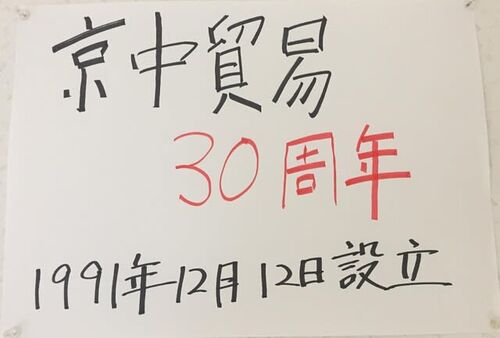 京中貿易
30周年
1991年12月12日設立